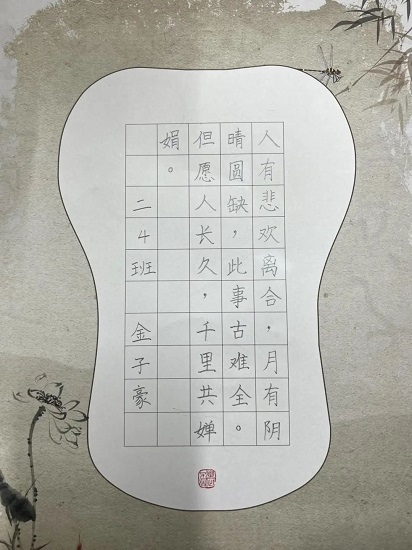 人有悲欢离合，月有阴
晴圆缺，此事古难全。
但愿人长久，千里共婵
娟。
二4班 金子豪